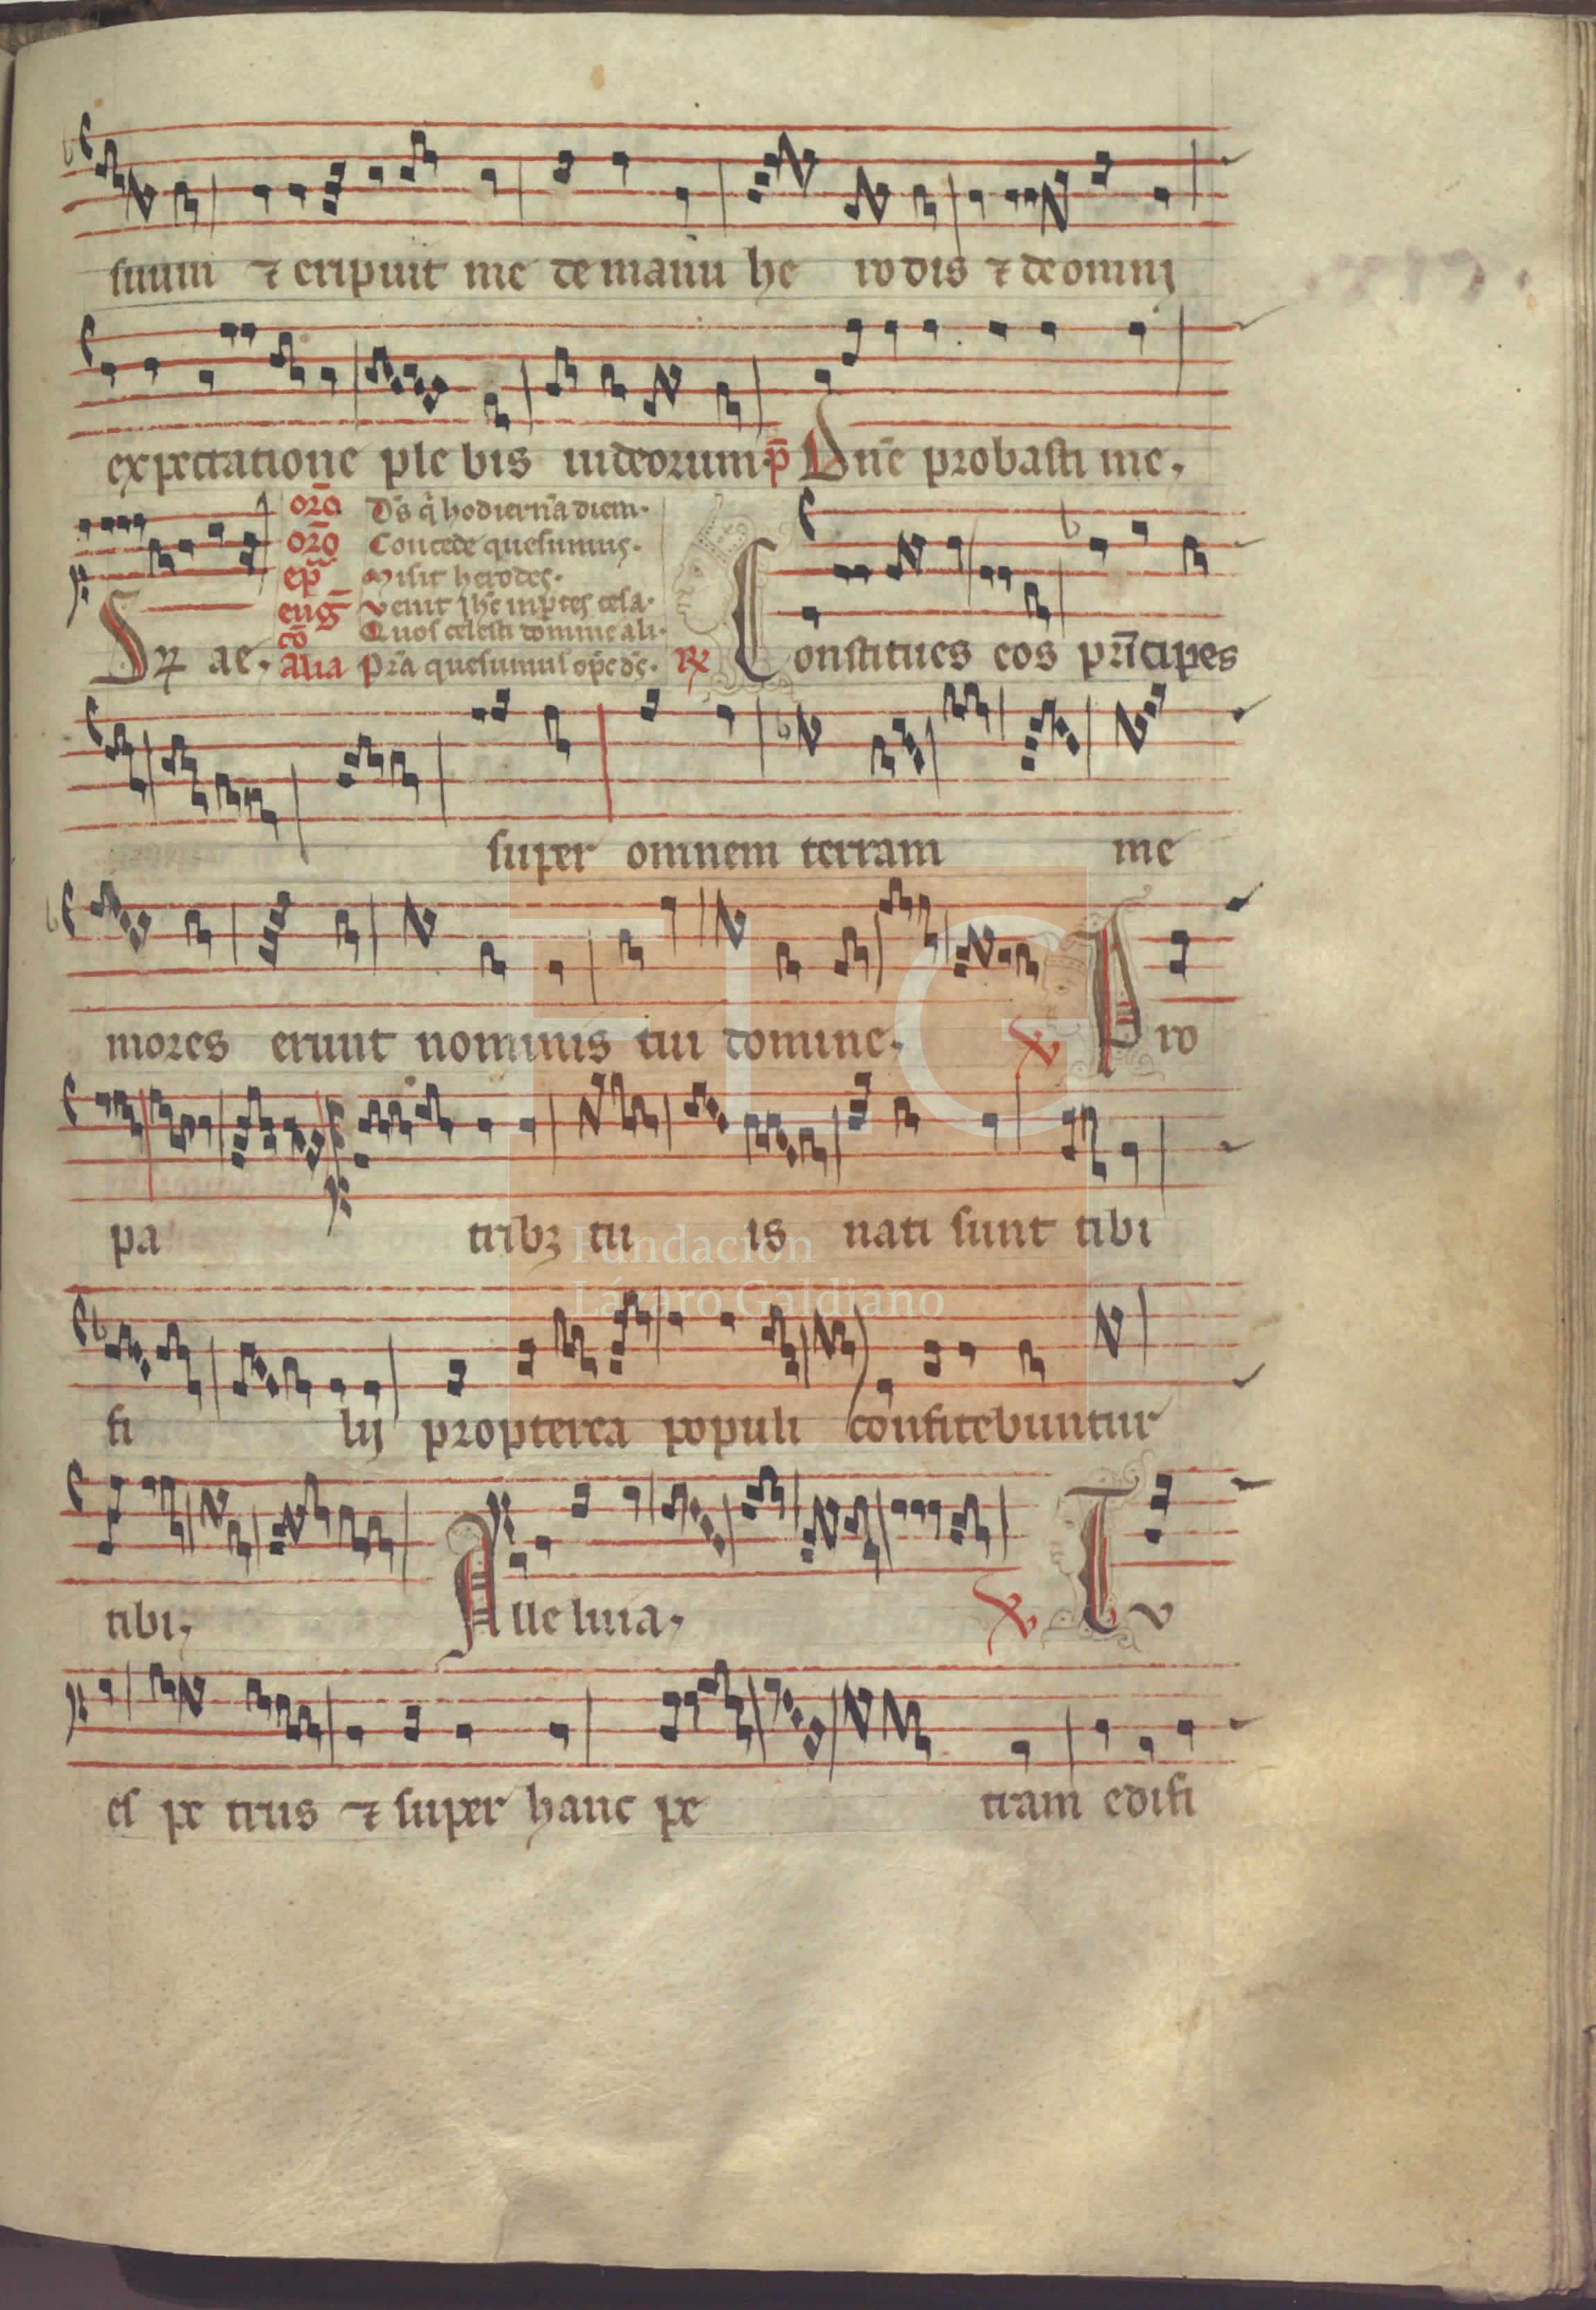 suum ⁊ eripuit me de manu he rodis ⁊ de omnj
expectatione ple bis iudeorum. p̄ Dn̄e probasti me.
or̄o Ds̄ q̄ hodiern̄a diem.
or̄o Concede quesumus.
ep̄ Misit herodes.
euḡ Venit jhc̄ in p̄tes cesa.
cō Quos celesti domine ali.
Sꝝ ae. alia pr̄a quesumus op̄c ds̄. ℟ Constitues eos pr̄icipes
super omnem terram me
mores erunt nominis tui domine. ℣ Pro
pa tribꝫ tu is nati sunt tibi
fi lij propterea populi confitebuntur
tibi. Alleluia. ℣ Tv
es pe trus ⁊ super hanc pe tram edifi
FLG
Fundación
Lázaro Galdiano